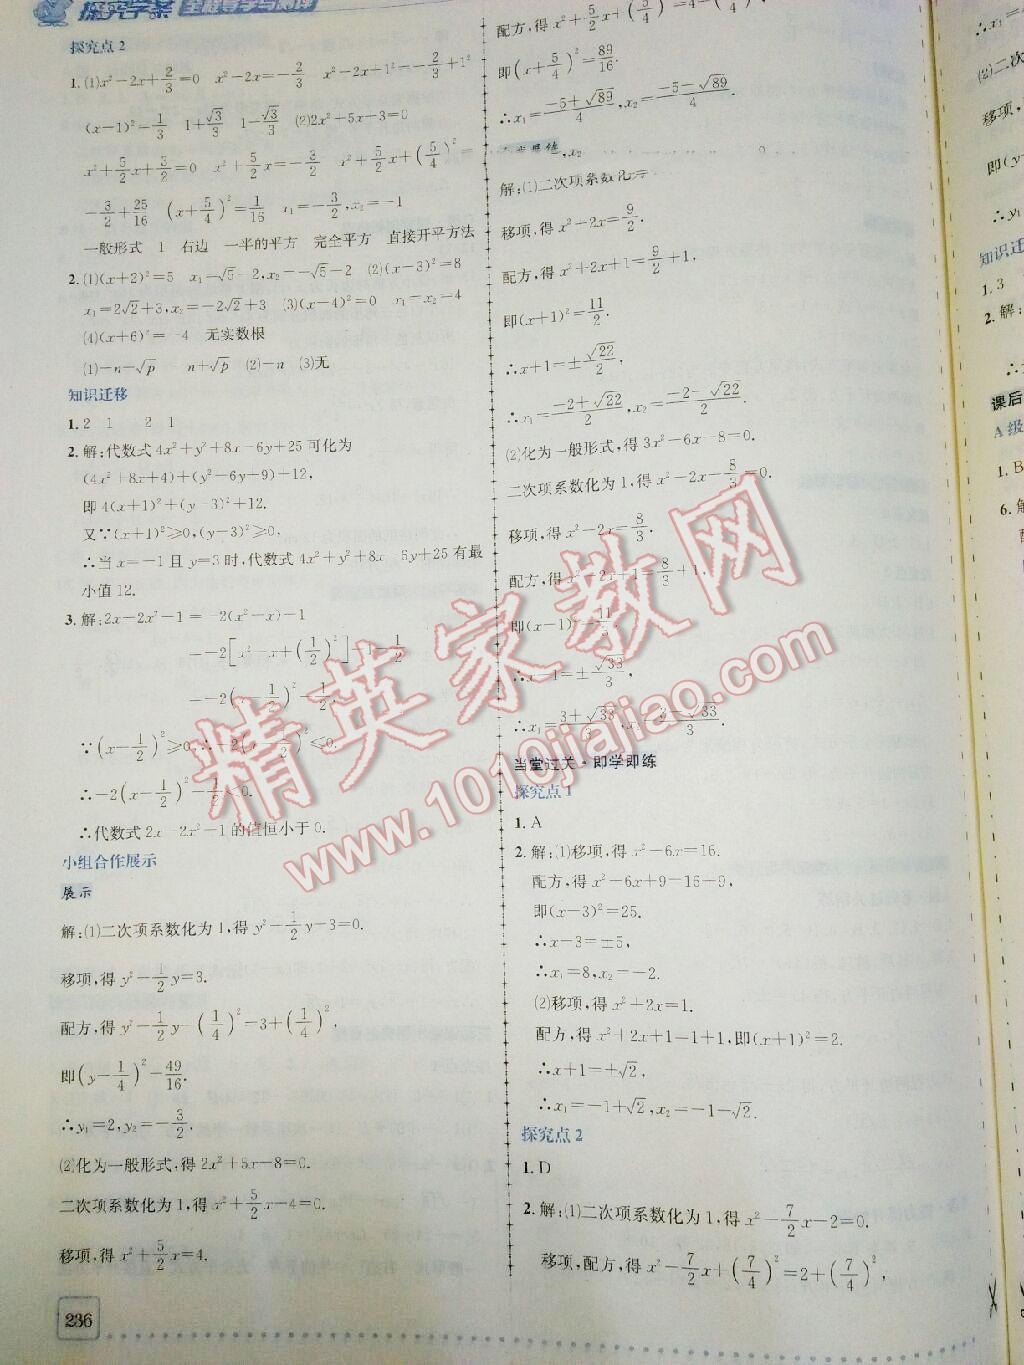 探究学案 全程导学与测评
探究点 2
1. (1)x²-2x+2/3=0 x²-2x=-2/3 x²-2x+1²=-2/3+1²
(x-1)²=1/3 1+√3/3 1-√3/3 (2)2x²+5x+3=0
x²+5/2x+3/2=0 x²+5/2x=-3/2 x²+5/2x+(5/4)²=
-3/2+25/16 (x+5/4)²=1/16 x₁=-3/2,x₂=-1
一般形式 1 右边 一半的平方 完全平方 直接开平方法
2. (1)(x+2)²=5 x₁=√5-2,x₂=-√5-2 (2)(x-3)²=8
x₁=2√2+3,x₂=-2√2+3 (3)(x-4)²=0 x₁=x₂=4
(4)(x+6)²=-4 无实数根
(1)-n-√p -n+√p (2)-n (3)无
知识迁移
1. 2 1 2 1
2. 解:代数式 4x²+y²+8x-6y+25 可化为
(4x²+8x+4)+(y²-6y+9)+12,
即 4(x+1)²+(y-3)²+12.
又∵(x+1)²≥0,(y-3)²≥0,
∴当 x=-1 且 y=3 时,代数式 4x²+y²+8x-6y+25 有最
小值 12.
3. 解:2x-2x²-1=-2(x²-x)-1
=-2[x²-x+(1/2)²]-1+1/2
=-2(x-1/2)²-1/2,
∵(x-1/2)²≥0,∴-2(x-1/2)²≤0.
∴-2(x-1/2)²-1/2<0.
∴代数式 2x-2x²-1 的值恒小于 0.
小组合作展示
展示
解:(1)二次项系数化为 1,得 y²-1/2y-3=0.
移项,得 y²-1/2y=3.
配方,得 y²-1/2y+(1/4)²=3+(1/4)²,
即(y-1/4)²=49/16.
∴y₁=2,y₂=-3/2.
(2)化为一般形式,得 2x²+5x-8=0.
二次项系数化为 1,得 x²+5/2x-4=0.
移项,得 x²+5/2x=4.
236
配方,得 x²+5/2x+(5/4)²=4+(5/4)²
即(x+5/4)²=89/16.
∴x₁=-5+√89/4,x₂=-5-√89/4.
解:(1)二次项系数化
移项,得 x²+2x=9/2.
配方,得 x²+2x+1=9/2+1,
即(x+1)²=11/2.
∴x+1=±√22/2,
∴x₁=-2+√22/2,x₂=-2-√22/2.
(2)化为一般形式,得 3x²-6x-8=0.
二次项系数化为 1,得 x²-2x-8/3=0.
移项,得 x²-2x=8/3.
配方,得 x²-2x+1=8/3+1,
即(x-1)²=11/3.
∴x-1=±√33/3,
∴x₁=3+√33/3,x₂=3-√33/3.
当堂过关·即学即练
探究点 1
1. A
2. 解:(1)移项,得 x²-6x=16.
配方,得 x²-6x+9=16+9,
即(x-3)²=25.
∴x-3=±5,
∴x₁=8,x₂=-2.
(2)移项,得 x²+2x=1.
配方,得 x²+2x+1=1+1,即(x+1)²=2.
∴x+1=±√2,
∴x₁=-1+√2,x₂=-1-√2.
探究点 2
1. D
2. 解:(1)二次项系数化为 1,得 x²-7/2x-2=0.
移项,配方,得 x²-7/2x+(7/4)²=2+(7/4)²,
∴x₁=
(2)二次
移项,
即(y
∴y₁
知识迁
1. 3
2. 解:
课后
A 级
1. B
6. 解
精英家教网
www.1010jiajiao.com